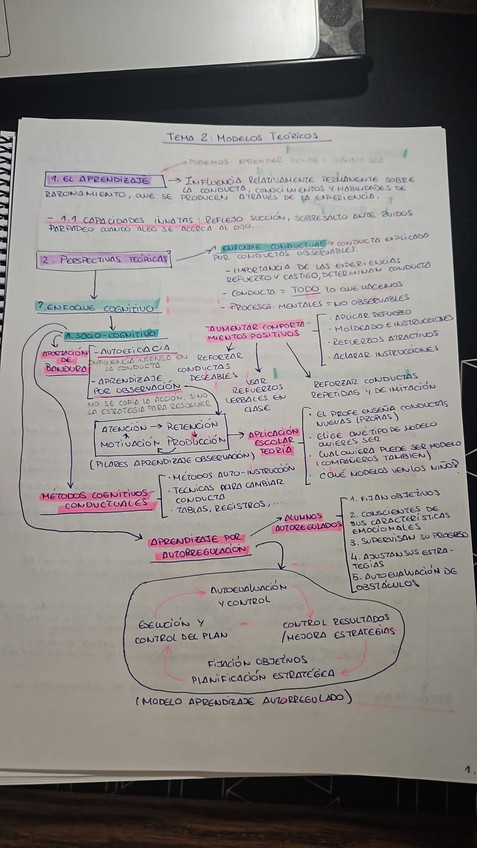 TEMA 2: MODELOS TEÓRICOS
→ PODEMOS APRENDER
1. EL APRENDIZAJE → INFLUENCIA RELATIVAMENTE PERMANENTE SOBRE
LA CONDUCTA, CONOCIMIENTOS Y HABILIDADES DE
RAZONAMIENTO, QUE SE PRODUCEN A TRAVÉS DE LA EXPERIENCIA.
- 1.1 CAPACIDADES INNATAS: REFLEJO SUCCIÓN, SOBRESALTO ANTE RUIDOS
PARPADEO CUANDO ALGO SE ACERCA AL OJO...
2. PERSPECTIVAS TEÓRICAS
1. ENFOQUE CONDUCTUAL → CONDUCTA EXPLICADA
POR CONDUCTAS OBSERVABLES.
- IMPORTANCIA DE LAS EXPERIENCIAS
REFUERZO Y CASTIGO, DETERMINAN CONDUCTA
- CONDUCTA = TODO LO QUE HACEMOS
- PROCESOS MENTALES = NO OBSERVABLES
AUMENTAR COMPORTA-
MIENTOS POSITIVOS
· APLICAR REFUERZO
· MOLDEADO E INSTRUCCIONES
· REFUERZOS ATRACTIVOS
· ACLARAR INSTRUCCIONES
REFORZAR
CONDUCTAS
DESEABLES
USAR
REFUERZOS
VERBALES EN
CLASE
REFORZAR CONDUCTAS
REPETIDAS Y DE IMITACIÓN
2. ENFOQUE COGNITIVO
1. SOCIO-COGNITIVO
APORTACIÓN
DE
BANDURA
- AUTOEFICACIA
INFLUENCIA INTENSA EN
LA CONDUCTA
- APRENDIZAJE
POR OBSERVACIÓN
NO SE COPIA LA ACCIÓN, SINO
LA ESTRATEGIA PARA RESOLVER
ATENCIÓN → RETENCIÓN
MOTIVACIÓN PRODUCCIÓN
(PILARES APRENDIZAJE OBSERVACIÓN)
APLICACIÓN
ESCOLAR
TEORÍA
· EL PROFE ENSEÑA CONDUCTAS
NUEVAS (PROPIAS)
· ELIGE QUÉ TIPO DE MODELO
QUIERES SER
· CUALQUIERA PUEDE SER MODELO
(COMPAÑEROS TAMBIÉN)
· ¿QUÉ MODELOS VEN LOS NIÑOS?
MÉTODOS COGNITIVOS
CONDUCTUALES
· MÉTODOS AUTO-INSTRUCCIÓN
· TÉCNICAS PARA CAMBIAR
CONDUCTA
· TABLAS, REGISTROS, ...
APRENDIZAJE POR
AUTORREGULACIÓN
ALUMNOS
AUTOREGULADOS
1. FIJAN OBJETIVOS
2. CONSCIENTES DE
SUS CARACTERÍSTICAS
EMOCIONALES
3. SUPERVISAN SU PROGRESO
4. AJUSTAN SUS ESTRA-
TEGIAS
5. AUTOEVALUACIÓN DE
OBSTÁCULOS
AUTOEVALUACIÓN
Y CONTROL
EJECUCIÓN Y
CONTROL DEL PLAN
CONTROL RESULTADOS
/MEJORA ESTRATEGIAS
FIJACIÓN OBJETIVOS
PLANIFICACIÓN ESTRATÉGICA
(MODELO APRENDIZAJE AUTORREGULADO)
1.